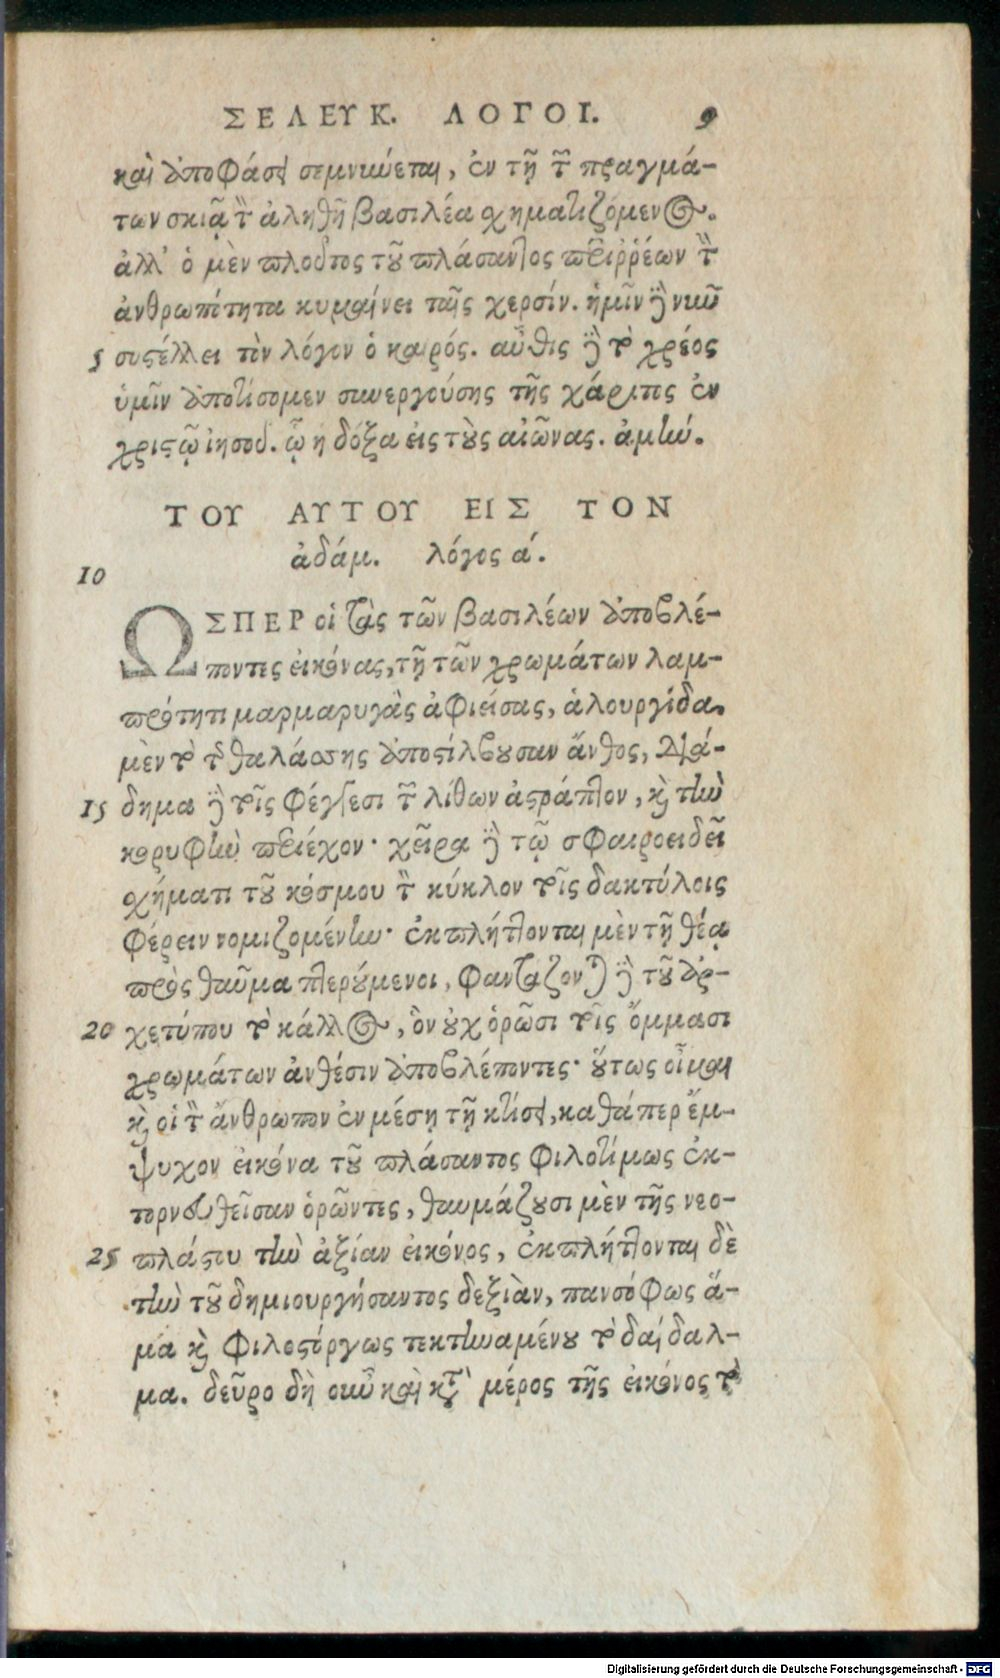 ΣΕΛΕΥΚ. ΛΟΓΟΙ. 9
καὶ ἀποφάσει σεμνύνεται, ἐν τῇ τῶν πραγμά-
των σκιᾷ τὸν ἀληθῆ βασιλέα σχηματιζόμενος.
ἀλλ' ὁ μὲν πλοῦτος τοῦ πλάσαντος περιῤῥέων τὴν
ἀνθρωπότητα κυμαίνει ταῖς χερσίν. ἡμῖν δὲ νῦν
5 συστέλλει τὸν λόγον ὁ καιρός. αὖθις δὲ τὸ χρέος
ὑμῖν ἀποτίσομεν συνεργούσης τῆς χάριτος ἐν
χριστῷ ἰησοῦ. ᾧ ἡ δόξα εἰς τοὺς αἰῶνας. ἀμήν.
ΤΟΥ ΑΥΤΟΥ ΕΙΣ ΤΟΝ
ἀδάμ. λόγος α΄.
10
ΩΣΠΕΡ οἱ τὰς τῶν βασιλέων ἀποβλέ-
ποντες εἰκόνας, τῇ τῶν χρωμάτων λαμ-
πρότητι μαρμαρυγὰς ἀφιείσας, ἁλουργίδα
μὲν τὸ τῆς θαλάσσης ἀποστίλβουσαν ἄνθος, διά-
15 δημα δὲ τοῖς φέγγεσι τῶν λίθων ἀστράπτον, καὶ τὴν
κορυφὴν περιέχον· χεῖρα δὲ τῷ σφαιροειδεῖ
σχήματι τοῦ κόσμου τὸν κύκλον τοῖς δακτύλοις
φέρειν νομιζομένην· ἐκπλήττονται μὲν τῇ θέᾳ
πρὸς θαῦμα πτερούμενοι, φαντάζονται δὲ τοῦ ἀρ-
20 χετύπου τὸ κάλλος, ὃν οὐχ ὁρῶσι τοῖς ὄμμασι
χρωμάτων ἀνθέσιν ἀποβλέποντες· οὕτως οἶμαι
καὶ οἱ τὸν ἄνθρωπον ἐν μέσῃ τῇ κτίσει, καθάπερ ἔμ-
ψυχον εἰκόνα τοῦ πλάσαντος φιλοτίμως ἐκ-
τορνευθεῖσαν ὁρῶντες, θαυμάζουσι μὲν τῆς νεο-
25 πλάστου τὴν ἀξίαν εἰκόνος, ἐκπλήττονται δὲ
τὴν τοῦ δημιουργήσαντος δεξιὰν, πανσόφως ἅ-
μα καὶ φιλοστόργως τεκτηναμένου τὸ δαίδαλ-
μα. δεῦρο δὴ οὖν καὶ κατὰ μέρος τῆς εἰκόνος τὸ
Digitalisierung gefördert durch die Deutsche Forschungsgemeinschaft - DFG